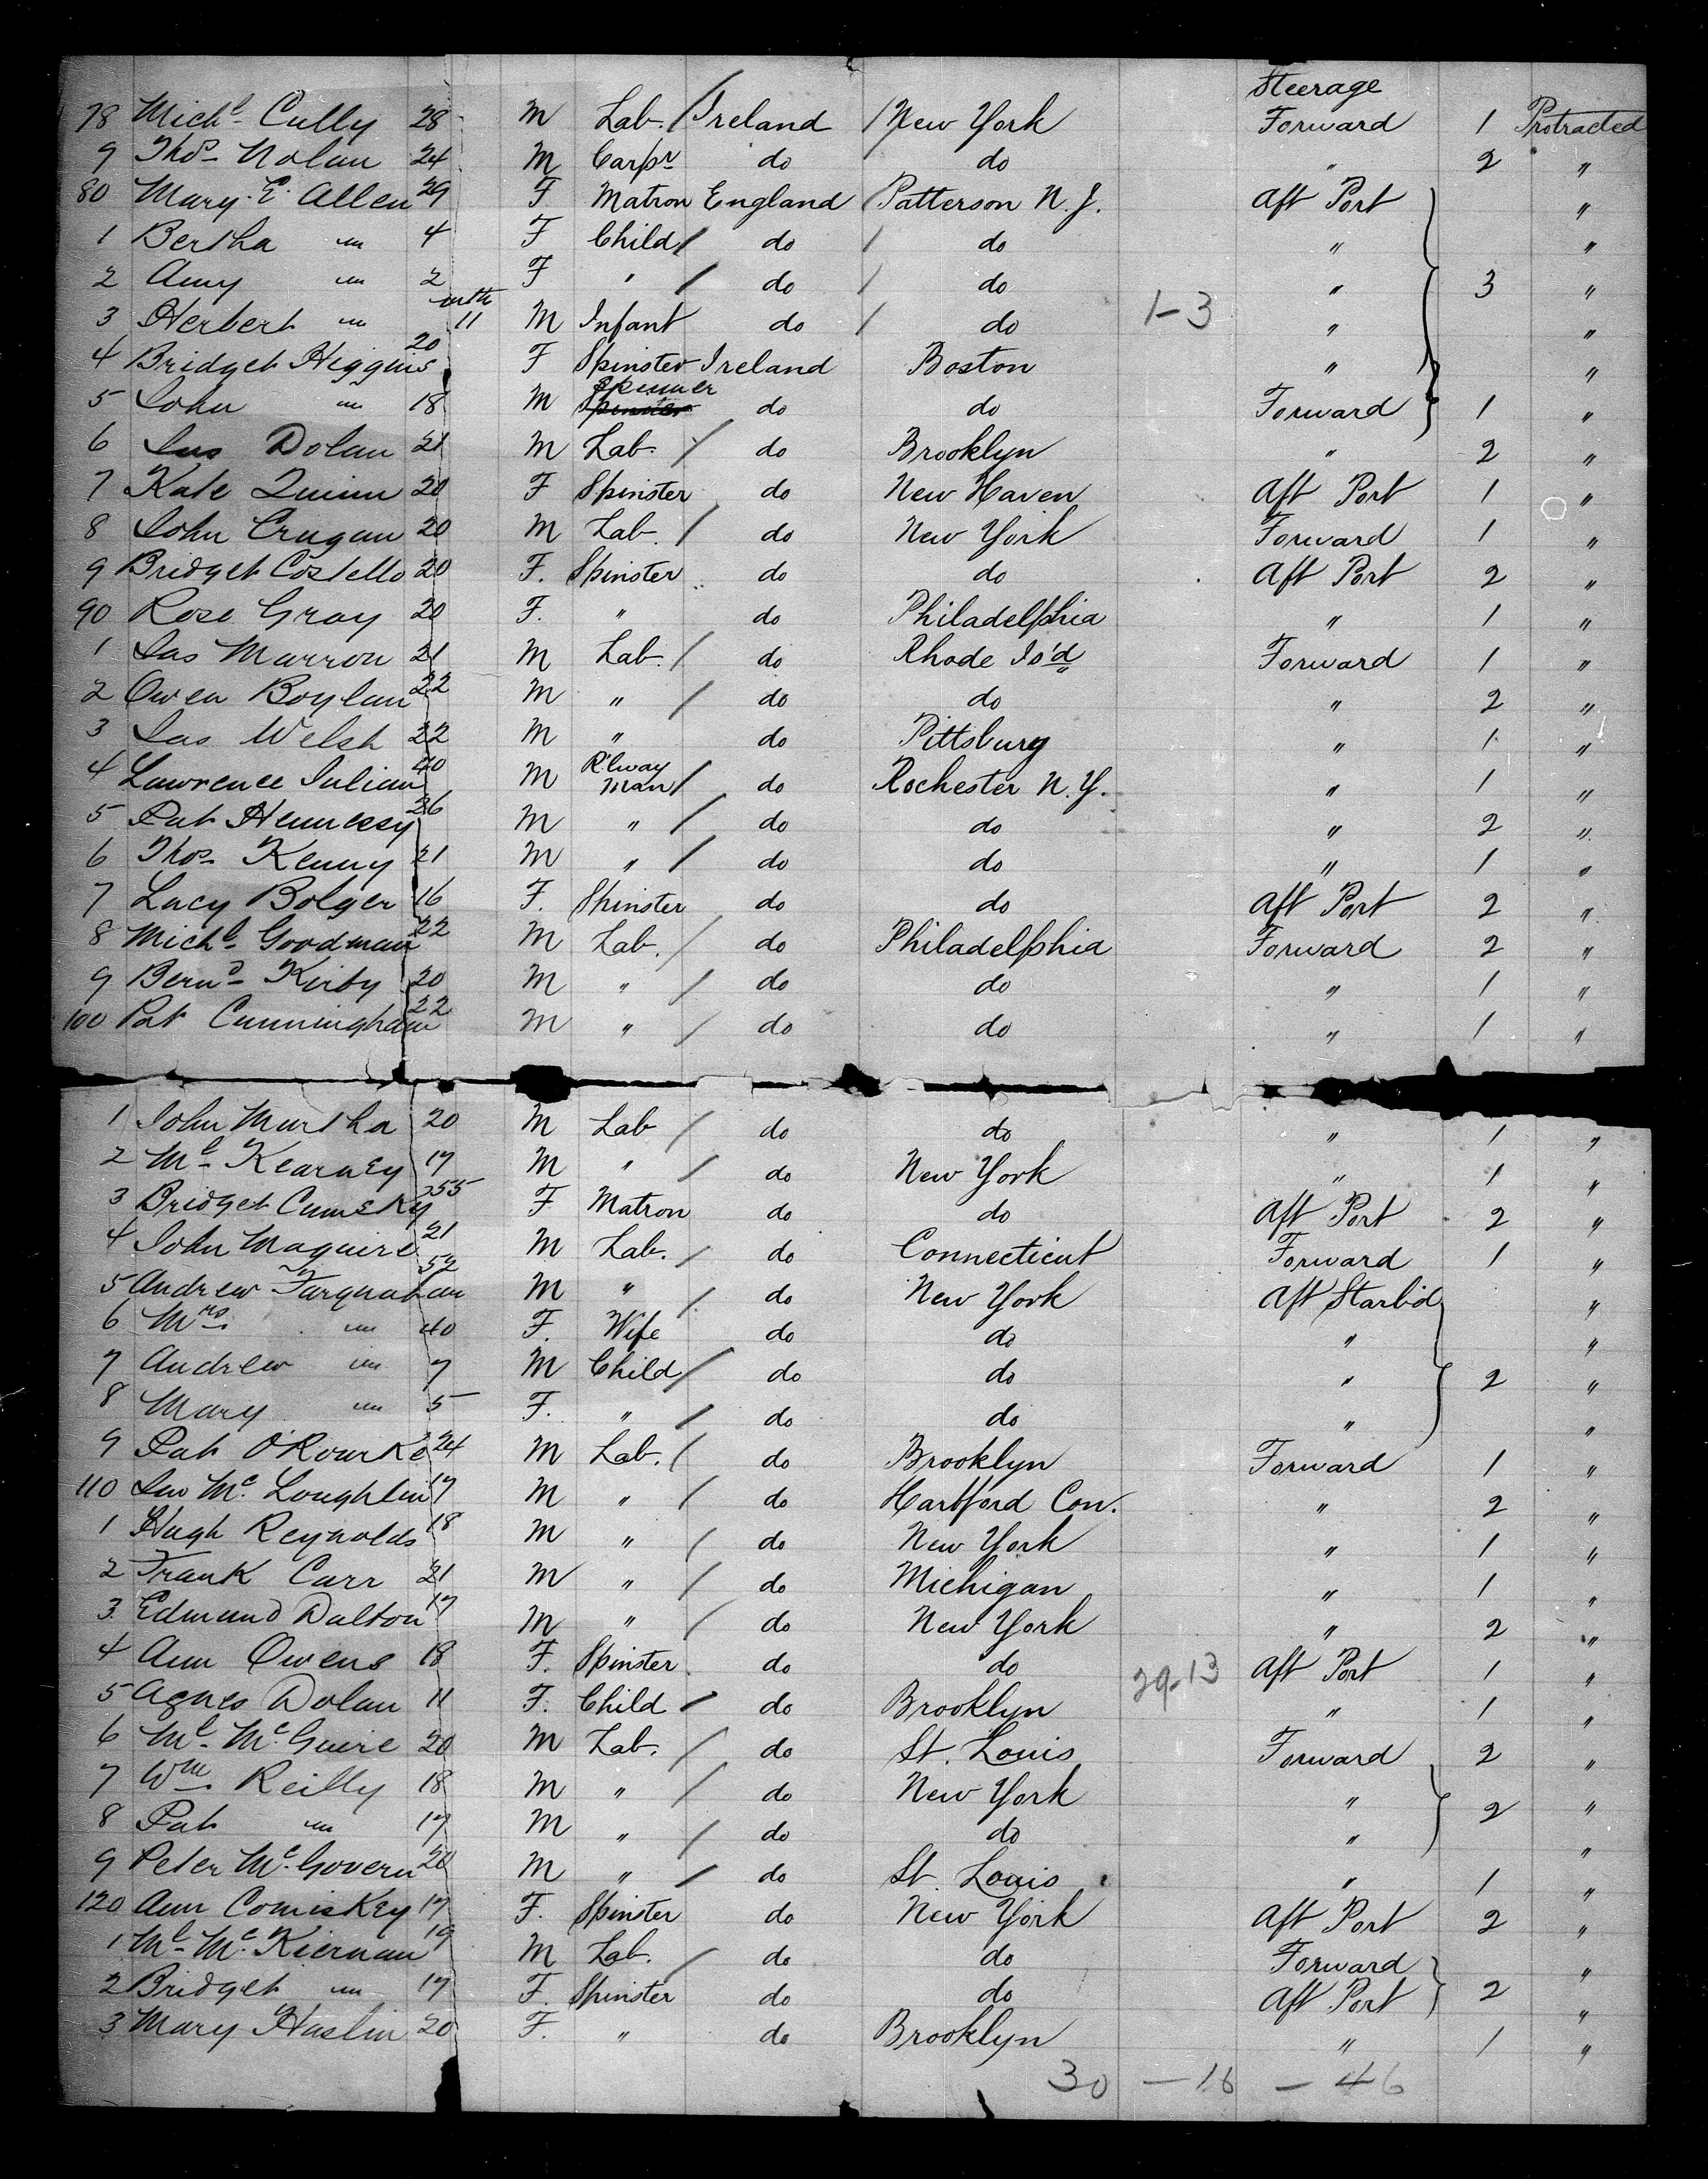 Steerage
78 Michl Cully 28 M Lab. / Ireland / New York Forward 1 Protracted
9 Thos Nolan 24 M Carpr do do " 2 "
80 Mary E. Allen 29 F Matron England / Patterson N.J. Aft Port "
1 Bertha " 4 F Child / do / do " "
2 Amy " 2 F " / do / do " 3 "
3 Herbert " mth 11 M Infant do / do 1-3 " "
4 Bridget Higgins 20 F Spinster Ireland Boston " "
5 John " 18 M Spinster Spinner do do Forward 1 "
6 Jas Dolan 21 M Lab. / do Brooklyn " 2 "
7 Kate Quinn 20 F Spinster do New Haven Aft Port 1 "
8 John Crugan 20 M Lab. / do New York Forward 1 "
9 Bridget Costello 20 F. Spinster do do Aft Port 2 "
90 Rose Gray 20 F. " do Philadelphia " 1 "
1 Jas Marron 21 M Lab. / do Rhode Is'd Forward 1 "
2 Owen Boylan 22 M " / do do " 2 "
3 Jas Welsh 22 M " do Pittsburg " 1 "
4 Lawrence Julian 40 M R'lway Man / do Rochester N.Y. " 1 "
5 Pat Hennessy 26 M " / do do " 2 "
6 Thos Kenny 21 M " / do do " 1 "
7 Lucy Bolger 16 F. Spinster do do Aft Port 2 "
8 Michl Goodman 22 M Lab. / do Philadelphia Forward 2 "
9 Bernd Kirby 20 M " / do do " 1 "
100 Pat Cunningham 22 M " / do do " 1 "
1 John Murtha 20 M Lab / do do " 1 "
2 Ml Kearney 17 M " / do New York " 1 "
3 Bridget Cumesky 55 F Matron do do Aft Port 2 "
4 John Maguire 21 M Lab. / do Connecticut Forward 1 "
5 Andrew Farquahar 52 M " / do New York Aft Starb'd "
6 Mrs " 40 F. Wife do do " "
7 Andrew " 7 M Child / do do " 2 "
8 Mary " 5 F. " / do do " "
9 Pat O'Rourke 24 M Lab. / do Brooklyn Forward 1 "
110 Mc Loughlin 17 M " / do Hartford Con. " 2 "
1 Hugh Reynolds 18 M " / do New York " 1 "
2 Frank Carr 21 M " / do Michigan " 1 "
3. Edmund Dalton 17 M " / do New York " 2 "
4 Ann Owens 18 F. Spinster do do 29-13 Aft Port 1 "
5 Agnes Dolan 11 F. Child / do Brooklyn " 1 "
6 Ml McGuire 20 M Lab. / do St. Louis Forward 2 "
7 Wm Reilly 18 M " / do New York " 2 "
8 Pat " 17 M " / do do " "
9 Peter McGovern 20 M " / do St. Louis " 1 "
120 Ann Comiskey 17 F. Spinster do New York Aft Port 2 "
1 Ml McKiernan 19 M Lab. / do do Forward "
2 Bridget " 17 F. Spinster do do Aft Port 2 "
3 Mary Haslin 20 F. " do Brooklyn " 1 "
30 - 16 - 46